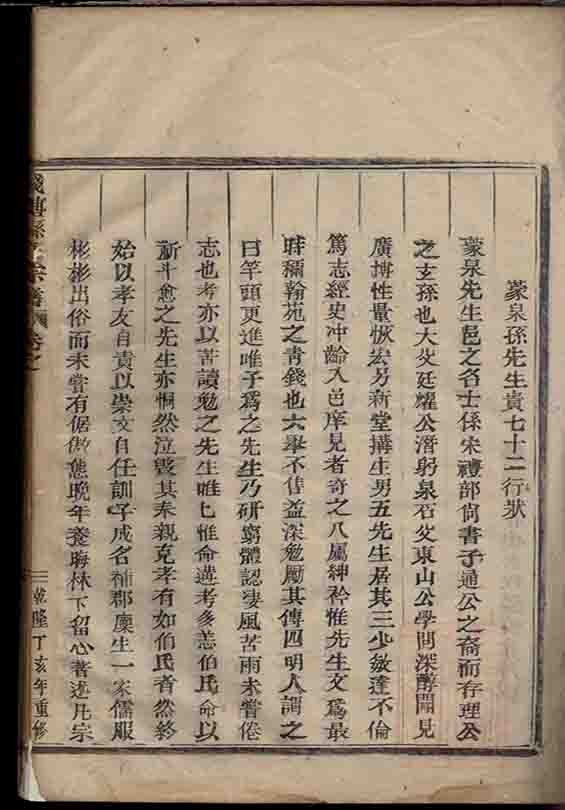 蒙泉孫先生貴七十二行狀
蒙泉先生邑之名士係宋禮部尙書子通公之裔而存理公
之玄孫也大父廷耀公潛躬泉石父東山公學問深醇聞見
廣博性量恢宏另新堂搆生男五先生居其三少敏達不倫
篤志經史冲齡入邑庠見者奇之八屬紳衿惟先生文爲最
群稱翰苑之靑錢也六舉不售益深勉勵其傳四明人謂之
曰竿頭更進唯予爲之先生乃硏窮體認凄風苦雨未嘗倦
志也考亦以苦讀勉之先生唯七惟命遘考多恙伯氏命以
斵斗愈之先生亦恫然泣毀其奉親克孝有如伯氏者然終
始以孝友自責以崇文自任訓子成名補郡廩生一家儒服
彬彬出俗而未嘗有倨傲態晩年養晦林下留心著述凡宗
孫 宗譜 卷之
乾隆丁亥年重修